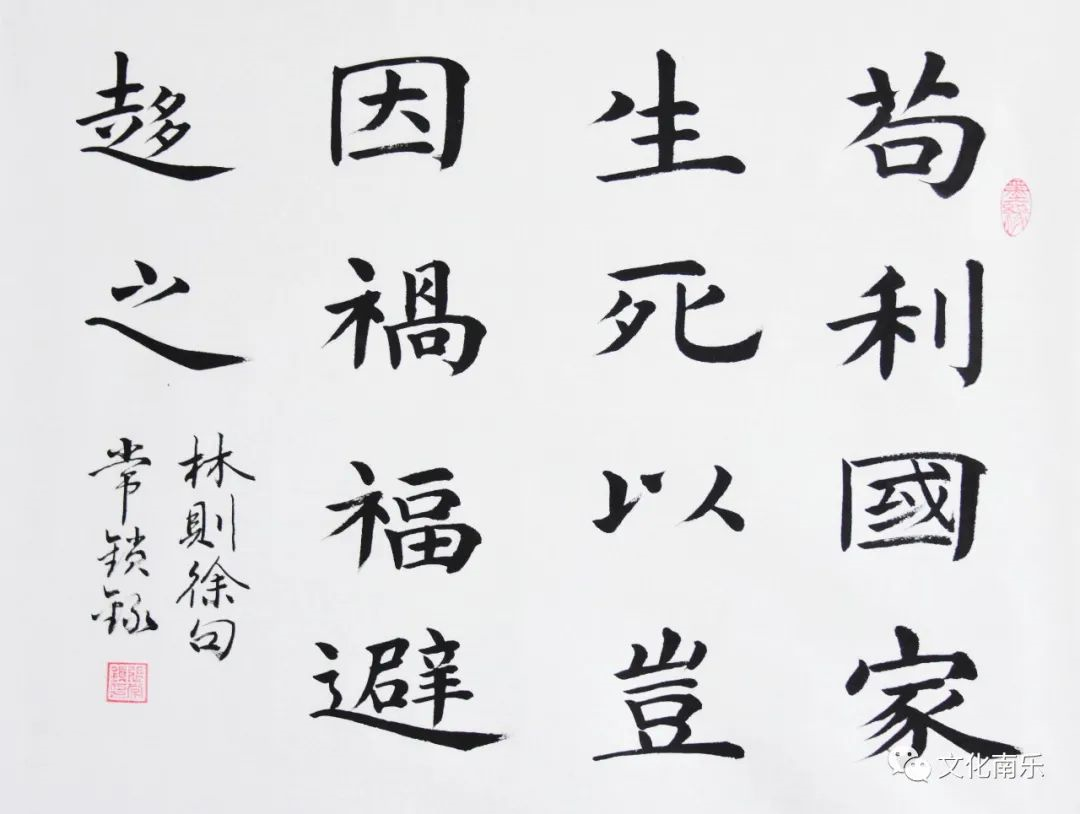 苟利國家
生死以豈
因禍福避
趍之
林則徐句
常鎖錄
文化南乐